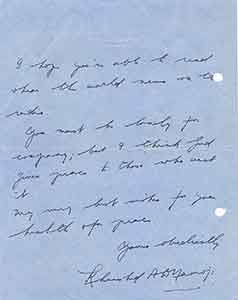 I hope you're able to read
the world news on the
radio.
You must be lonely for
company; but I think God
gives peace to those who want
it
My very best wishes for your
health & peace
Yours obediently